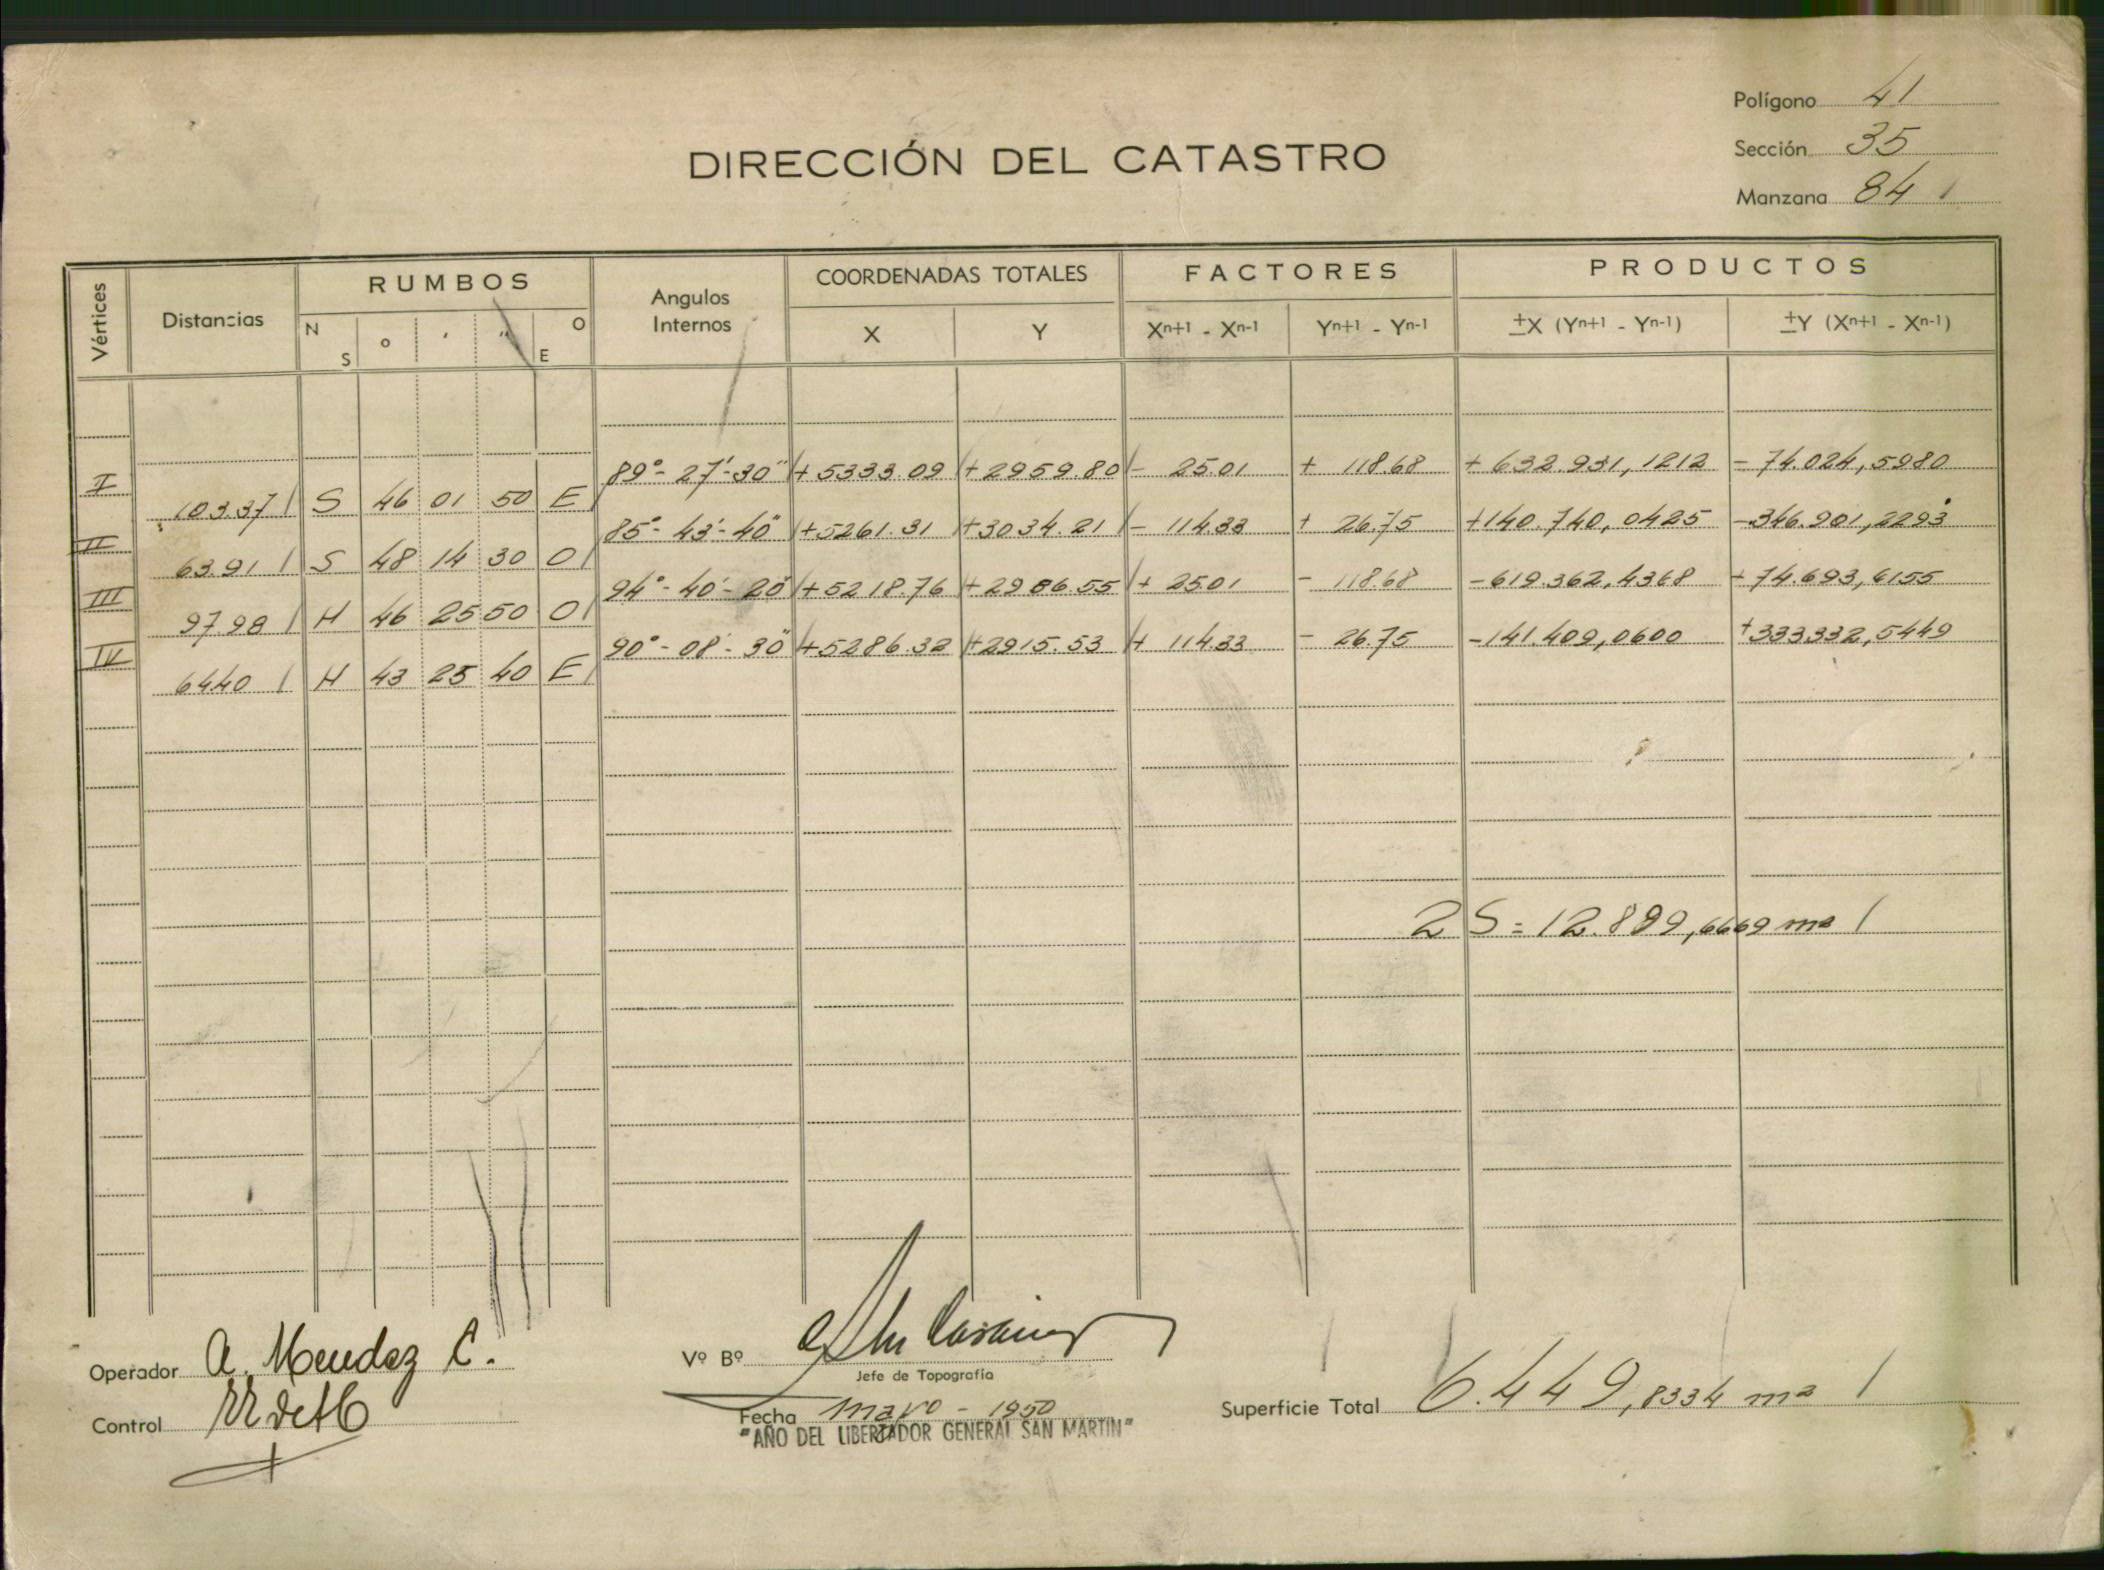 Polígono 41
DIRECCIÓN DEL CATASTRO
Sección 35
Manzana 84
Vértices Distancias RUMBOS Angulos Internos COORDENADAS TOTALES FACTORES PRODUCTOS
N S o ' " O E X Y Xn+1 - Xn-1 Yn+1 - Yn-1 ±X (Yn+1 - Yn-1) ±Y (Xn+1 - Xn-1)
I 89°-27'-30" +5333.09 +2959.80 - 25.01 + 118.68 + 632.931,1212 - 74.024,5980
103.37 S 46 01 50 E
II 85°-43'-40" +5261.31 +3034.21 - 114.33 + 26.75 +140.740,0425 -346.901,2293
63.91 S 48 14 30 O
III 94°-40'-20" +5218.76 +2986.55 + 25.01 - 118.68 -619.362,4368 + 74.693,6155
97.98 N 46 25 50 O
IV 90°-08'-30" +5286.32 +2915.53 + 114.33 - 26.75 -141.409,0600 +333.332,5449
64.40 N 43 25 40 E
2 S = 12.899,6669 m2
Operador A. Mendez C.
Vº Bº
Jefe de Topografía
Control
Fecha mayo - 1950
"AÑO DEL LIBERTADOR GENERAL SAN MARTIN"
Superficie Total 6.449,8334 m2